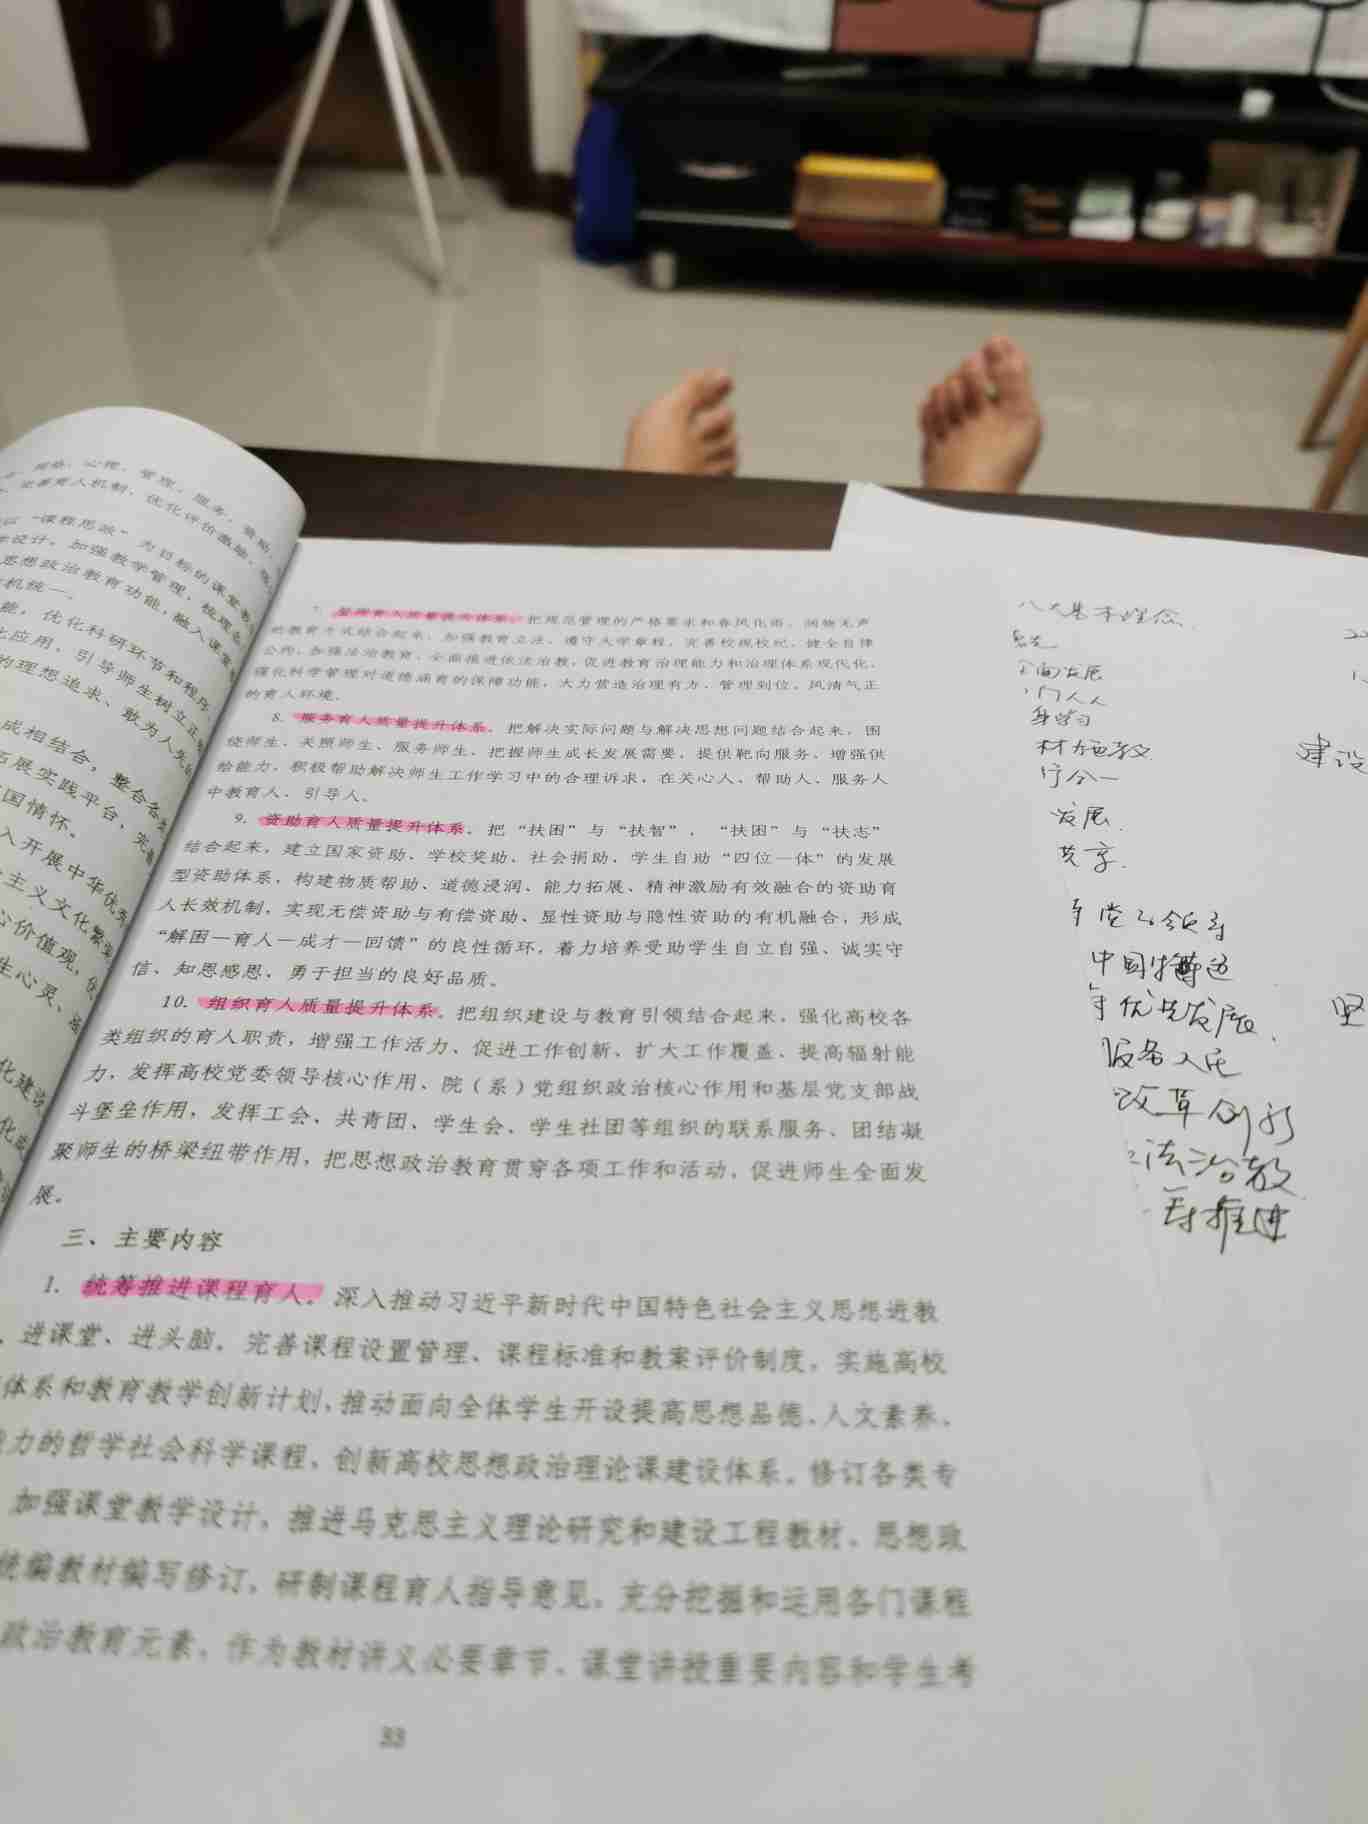 网络、心理、管理、服务、资助、
完善育人机制，优化评价激励，
以“课程思政”为目标的课堂
设计，加强教学管理，梳理
思想政治教育功能，融入课堂
机统一。
能，优化科研环节和程序，
应用，引导师生树立正
的理想追求、敢为人先
成相结合，整合各
展实践平台，完
国情怀。
入开展中华优秀
主义文化繁
心价值观，
生心灵、
化建设
7. 管理育人质量提升体系。把规范管理的严格要求和春风化雨、润物无声
的教育方式结合起来，加强教育立法，遵守大学章程，完善校规校纪，健全自律
公约，加强法治教育，全面推进依法治教，促进教育治理能力和治理体系现代化，
强化科学管理对道德涵育的保障功能，大力营造治理有方、管理到位、风清气正
的育人环境。
8. 服务育人质量提升体系。把解决实际问题与解决思想问题结合起来，围
绕师生、关照师生、服务师生，把握师生成长发展需要，提供靶向服务，增强供
给能力，积极帮助解决师生工作学习中的合理诉求，在关心人、帮助人、服务人
中教育人、引导人。
9. 资助育人质量提升体系。把“扶困”与“扶智”，“扶困”与“扶志”
结合起来，建立国家资助、学校奖助、社会捐助、学生自助“四位一体”的发展
型资助体系，构建物质帮助、道德浸润、能力拓展、精神激励有效融合的资助育
人长效机制，实现无偿资助与有偿资助、显性资助与隐性资助的有机融合，形成
“解困—育人—成才—回馈”的良性循环，着力培养受助学生自立自强、诚实守
信、知恩感恩、勇于担当的良好品质。
10. 组织育人质量提升体系。把组织建设与教育引领结合起来，强化高校各
类组织的育人职责，增强工作活力、促进工作创新、扩大工作覆盖、提高辐射能
力，发挥高校党委领导核心作用、院（系）党组织政治核心作用和基层党支部战
斗堡垒作用，发挥工会、共青团、学生会、学生社团等组织的联系服务、团结凝
聚师生的桥梁纽带作用，把思想政治教育贯穿各项工作和活动，促进师生全面发
展。
三、主要内容
1. 统筹推进课程育人。深入推动习近平新时代中国特色社会主义思想进教
、进课堂、进头脑。完善课程设置管理、课程标准和教案评价制度，实施高校
体系和教育教学创新计划，推动面向全体学生开设提高思想品德、人文素养、
力的哲学社会科学课程，创新高校思想政治理论课建设体系。修订各类专
加强课堂教学设计，推进马克思主义理论研究和建设工程教材、思想政
统编教材编写修订，研制课程育人指导意见，充分挖掘和运用各门课程
政治教育元素，作为教材讲义必要章节、课堂讲授重要内容和学生考
33
八大基本理念
全面发展
人人
学习
材施教
行合一
发展
共享
党的领导
中国特色
优先发展
服务人民
改革创新
法治教
推进
建设
坚